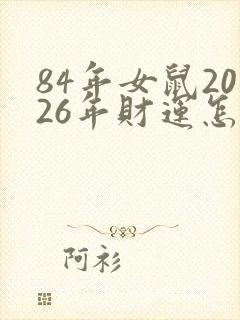 84年女鼠20
26年財運怎
阿衫